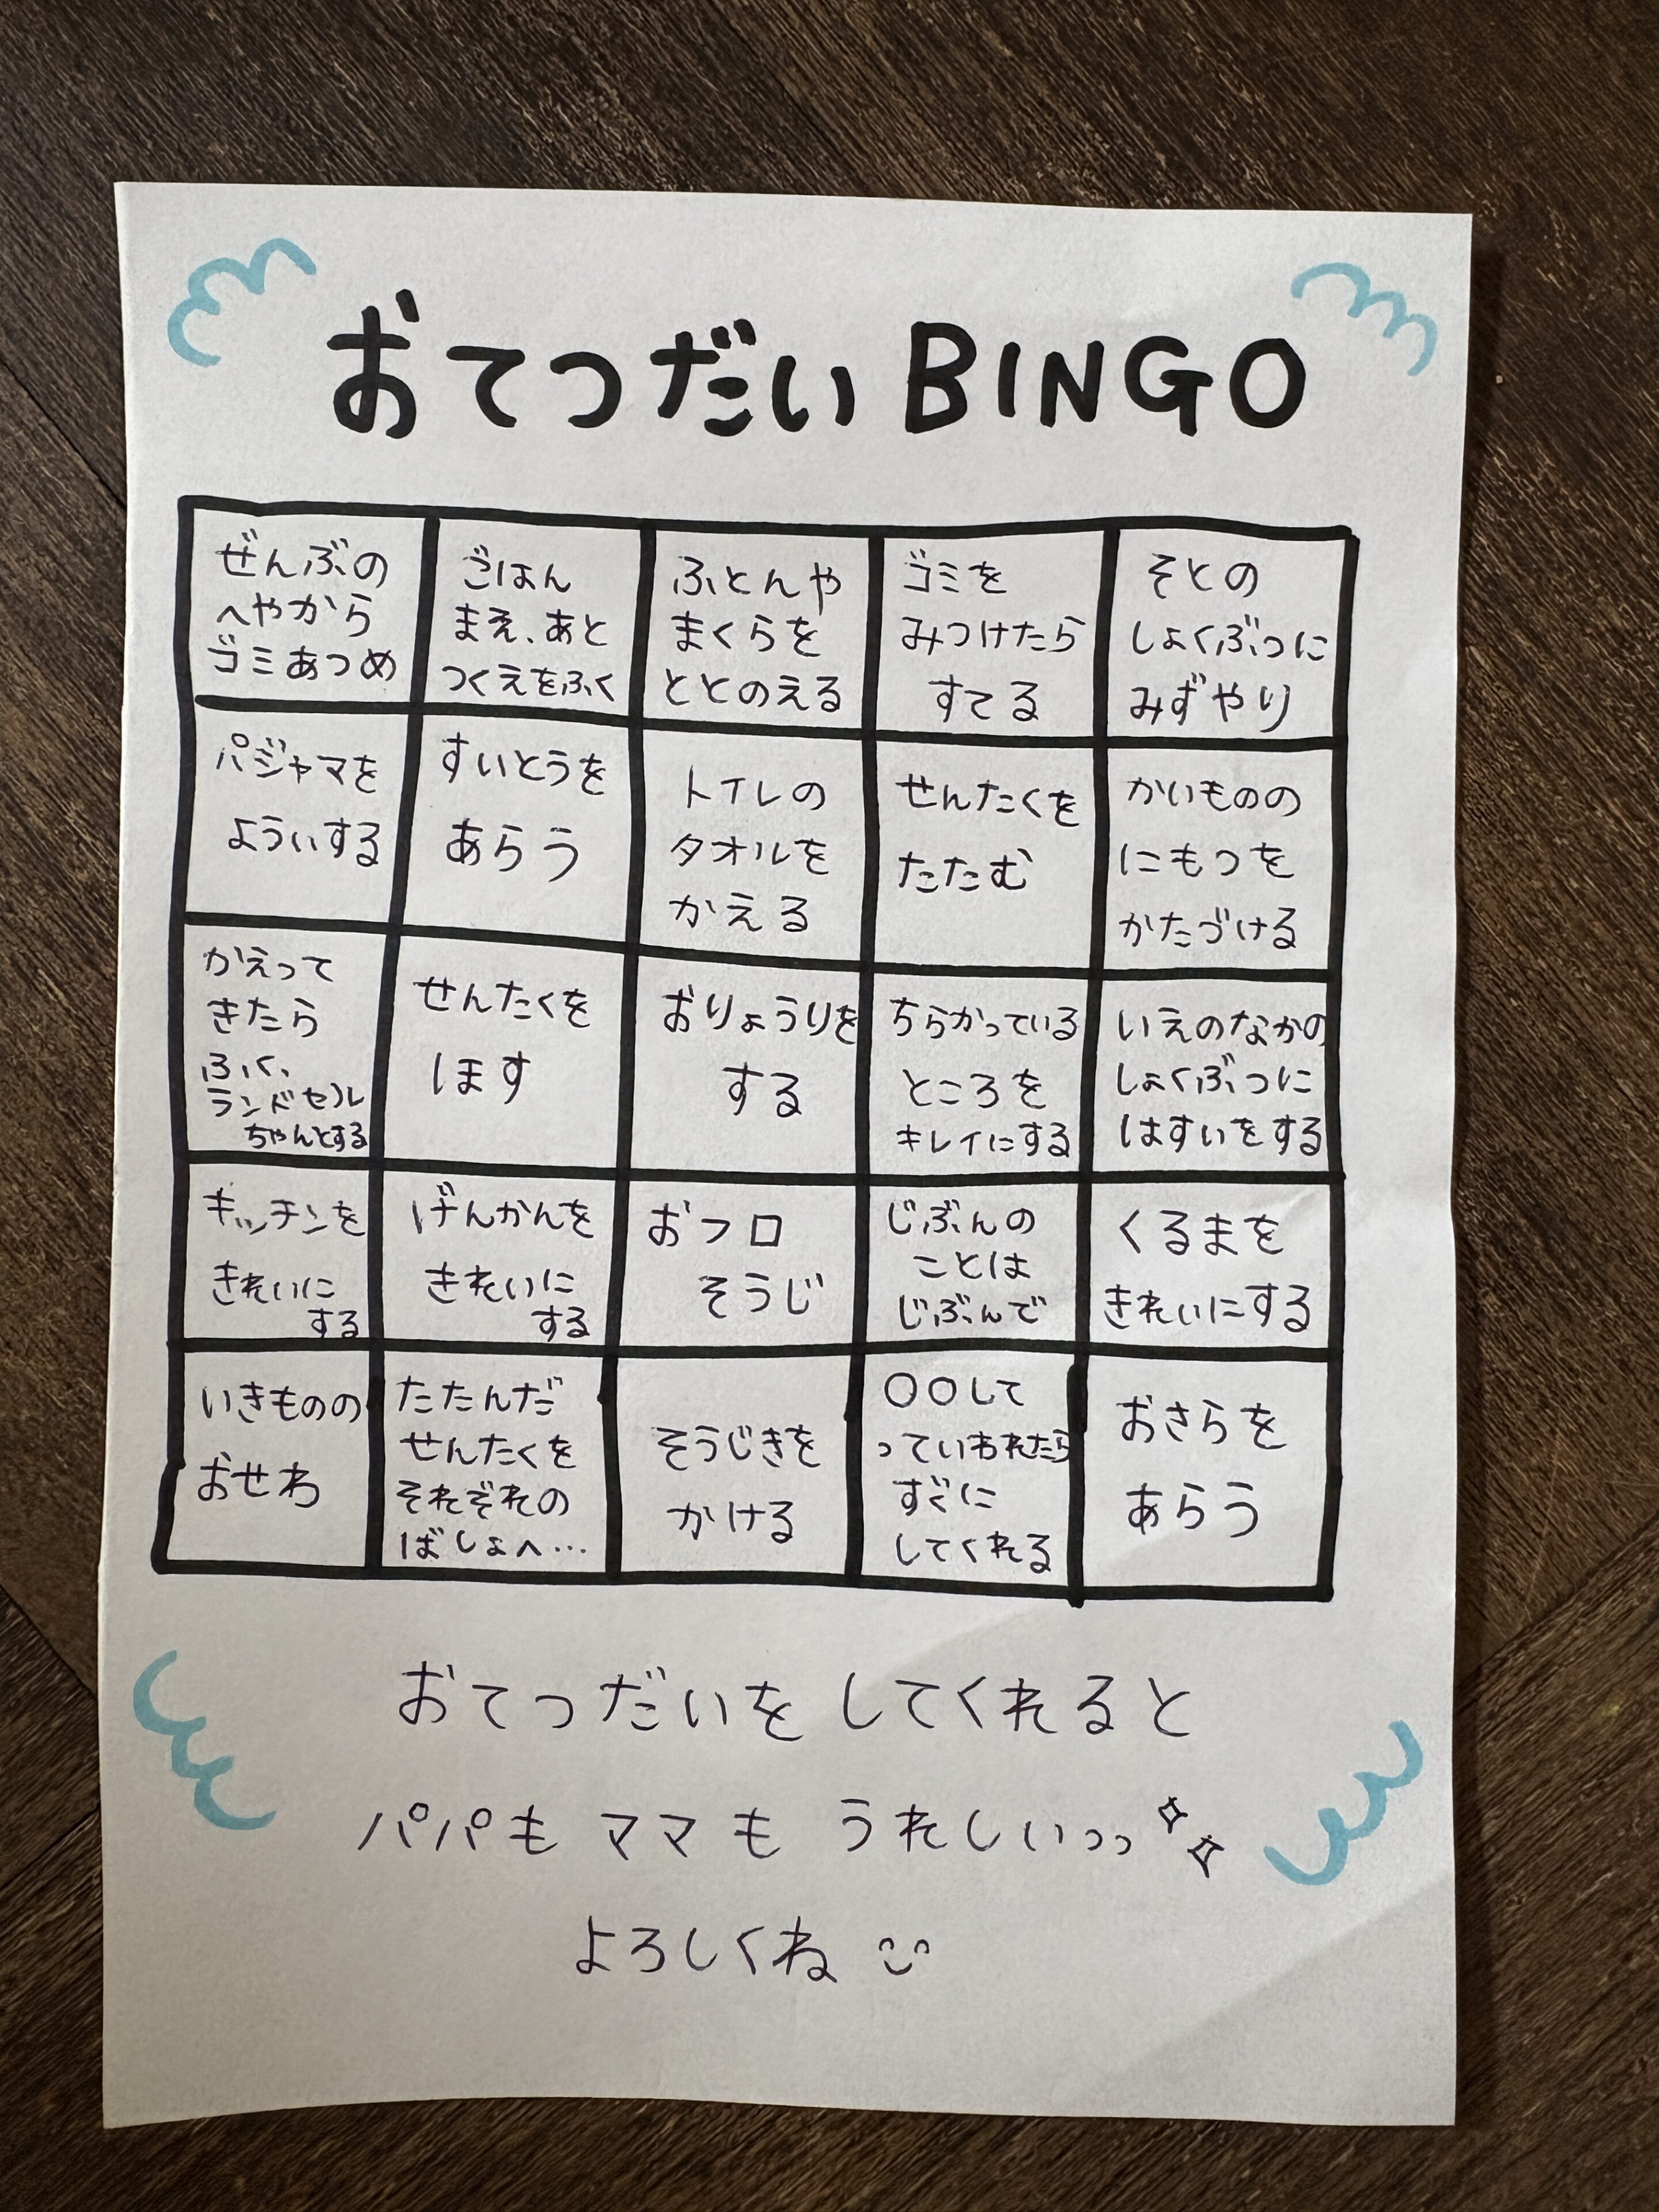 おてつだいBINGO
ぜんぶの
へやから
ゴミあつめ
ごはん
まえ、あと
つくえをふく
ふとんや
まくらを
ととのえる
ゴミを
みつけたら
すてる
そとの
しょくぶつに
みずやり
パジャマを
よういする
すいとうを
あらう
トイレの
タオルを
かえる
せんたくを
たたむ
かいものの
にもつを
かたづける
かえって
きたら
ふく、
ランドセル
ちゃんとする
せんたくを
ほす
おりょうりを
する
ちらかっている
ところを
キレイにする
いえのなかの
しょくぶつに
はすいをする
キッチンを
きれいに
する
げんかんを
きれいに
する
おフロ
そうじ
じぶんの
ことは
じぶんで
くるまを
きれいにする
いきものの
おせわ
たたんだ
せんたくを
それぞれの
ばしょへ…
そうじきを
かける
〇〇して
っていわれたら
すぐに
してくれる
おさらを
あらう
おてつだいを してくれると
パパも ママも うれしいっっ
よろしくね